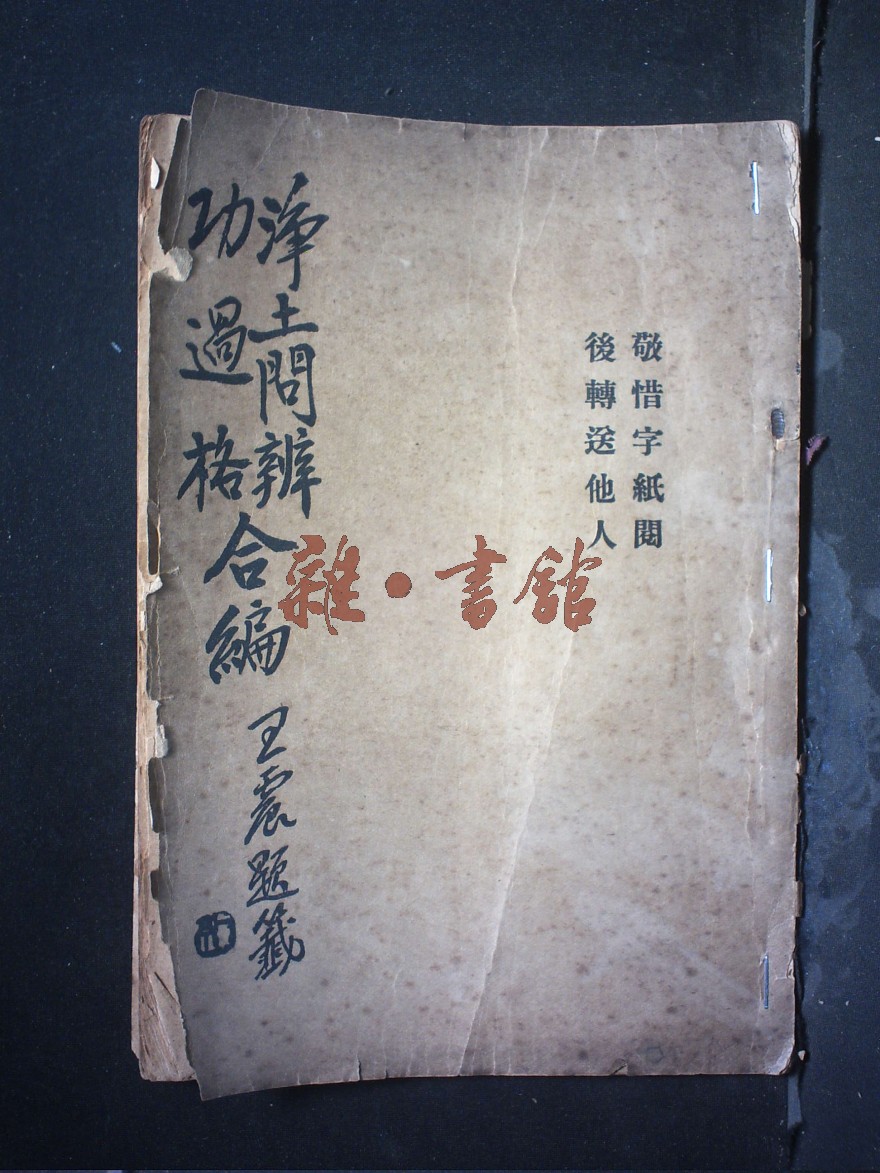 敬惜字紙閱
後轉送他人
淨土問辨
功過格
合編
王震題籤
雜·書館